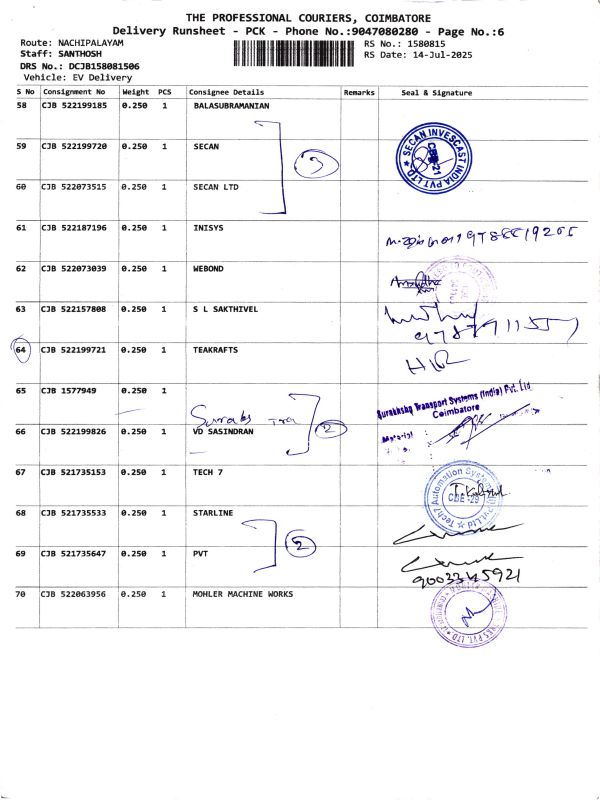 THE PROFESSIONAL COURIERS, COIMBATORE
Delivery Runsheet - PCK - Phone No.:9047080280 - Page No.:6
Route: NACHIPALAYAM RS No.: 1580815
Staff: SANTHOSH RS Date: 14-Jul-2025
DRS No.: DCJB158081506
Vehicle: EV Delivery
S No Consignment No Weight PCS Consignee Details Remarks Seal & Signature
58 CJB 522199185 0.250 1 BALASUBRAMANIAN
59 CJB 522199720 0.250 1 SECAN
SECAN INVESCAST INDIA PVT LTD
CBE-21
3
60 CJB 522073515 0.250 1 SECAN LTD
61 CJB 522187196 0.250 1 INISYS
62 CJB 522073039 0.250 1 WEBOND
63 CJB 522157808 0.250 1 S L SAKTHIVEL
64 CJB 522199721 0.250 1 TEAKRAFTS
65 CJB 1577949 0.250 1
Surakshaa Transport Systems (India) Pvt. Ltd
Coimbatore
Material :
2
66 CJB 522199826 0.250 1 VD SASINDRAN
67 CJB 521735153 0.250 1 TECH 7
Tech7 Automation Systems Pvt Ltd
CBE -29
68 CJB 521735533 0.250 1 STARLINE
2
69 CJB 521735647 0.250 1 PVT
9003345921
70 CJB 522063956 0.250 1 MOHLER MACHINE WORKS